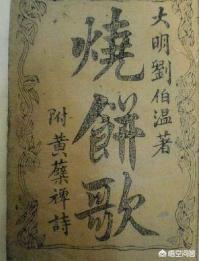 大明劉伯温著
燒餅歌
附黃蘗禪詩
悟空问答